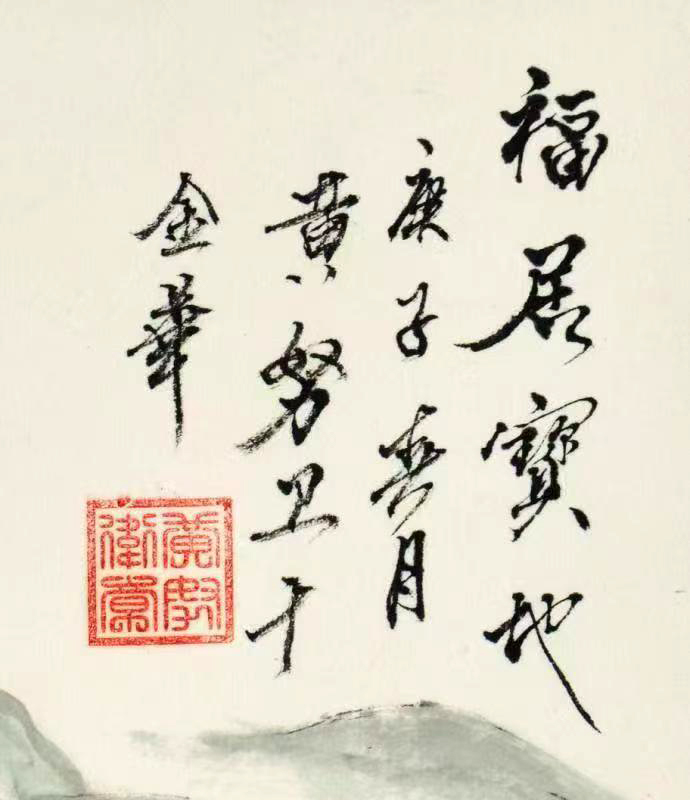 福居寶地
庚子春月
黄努卫于
金華
黄努
衛